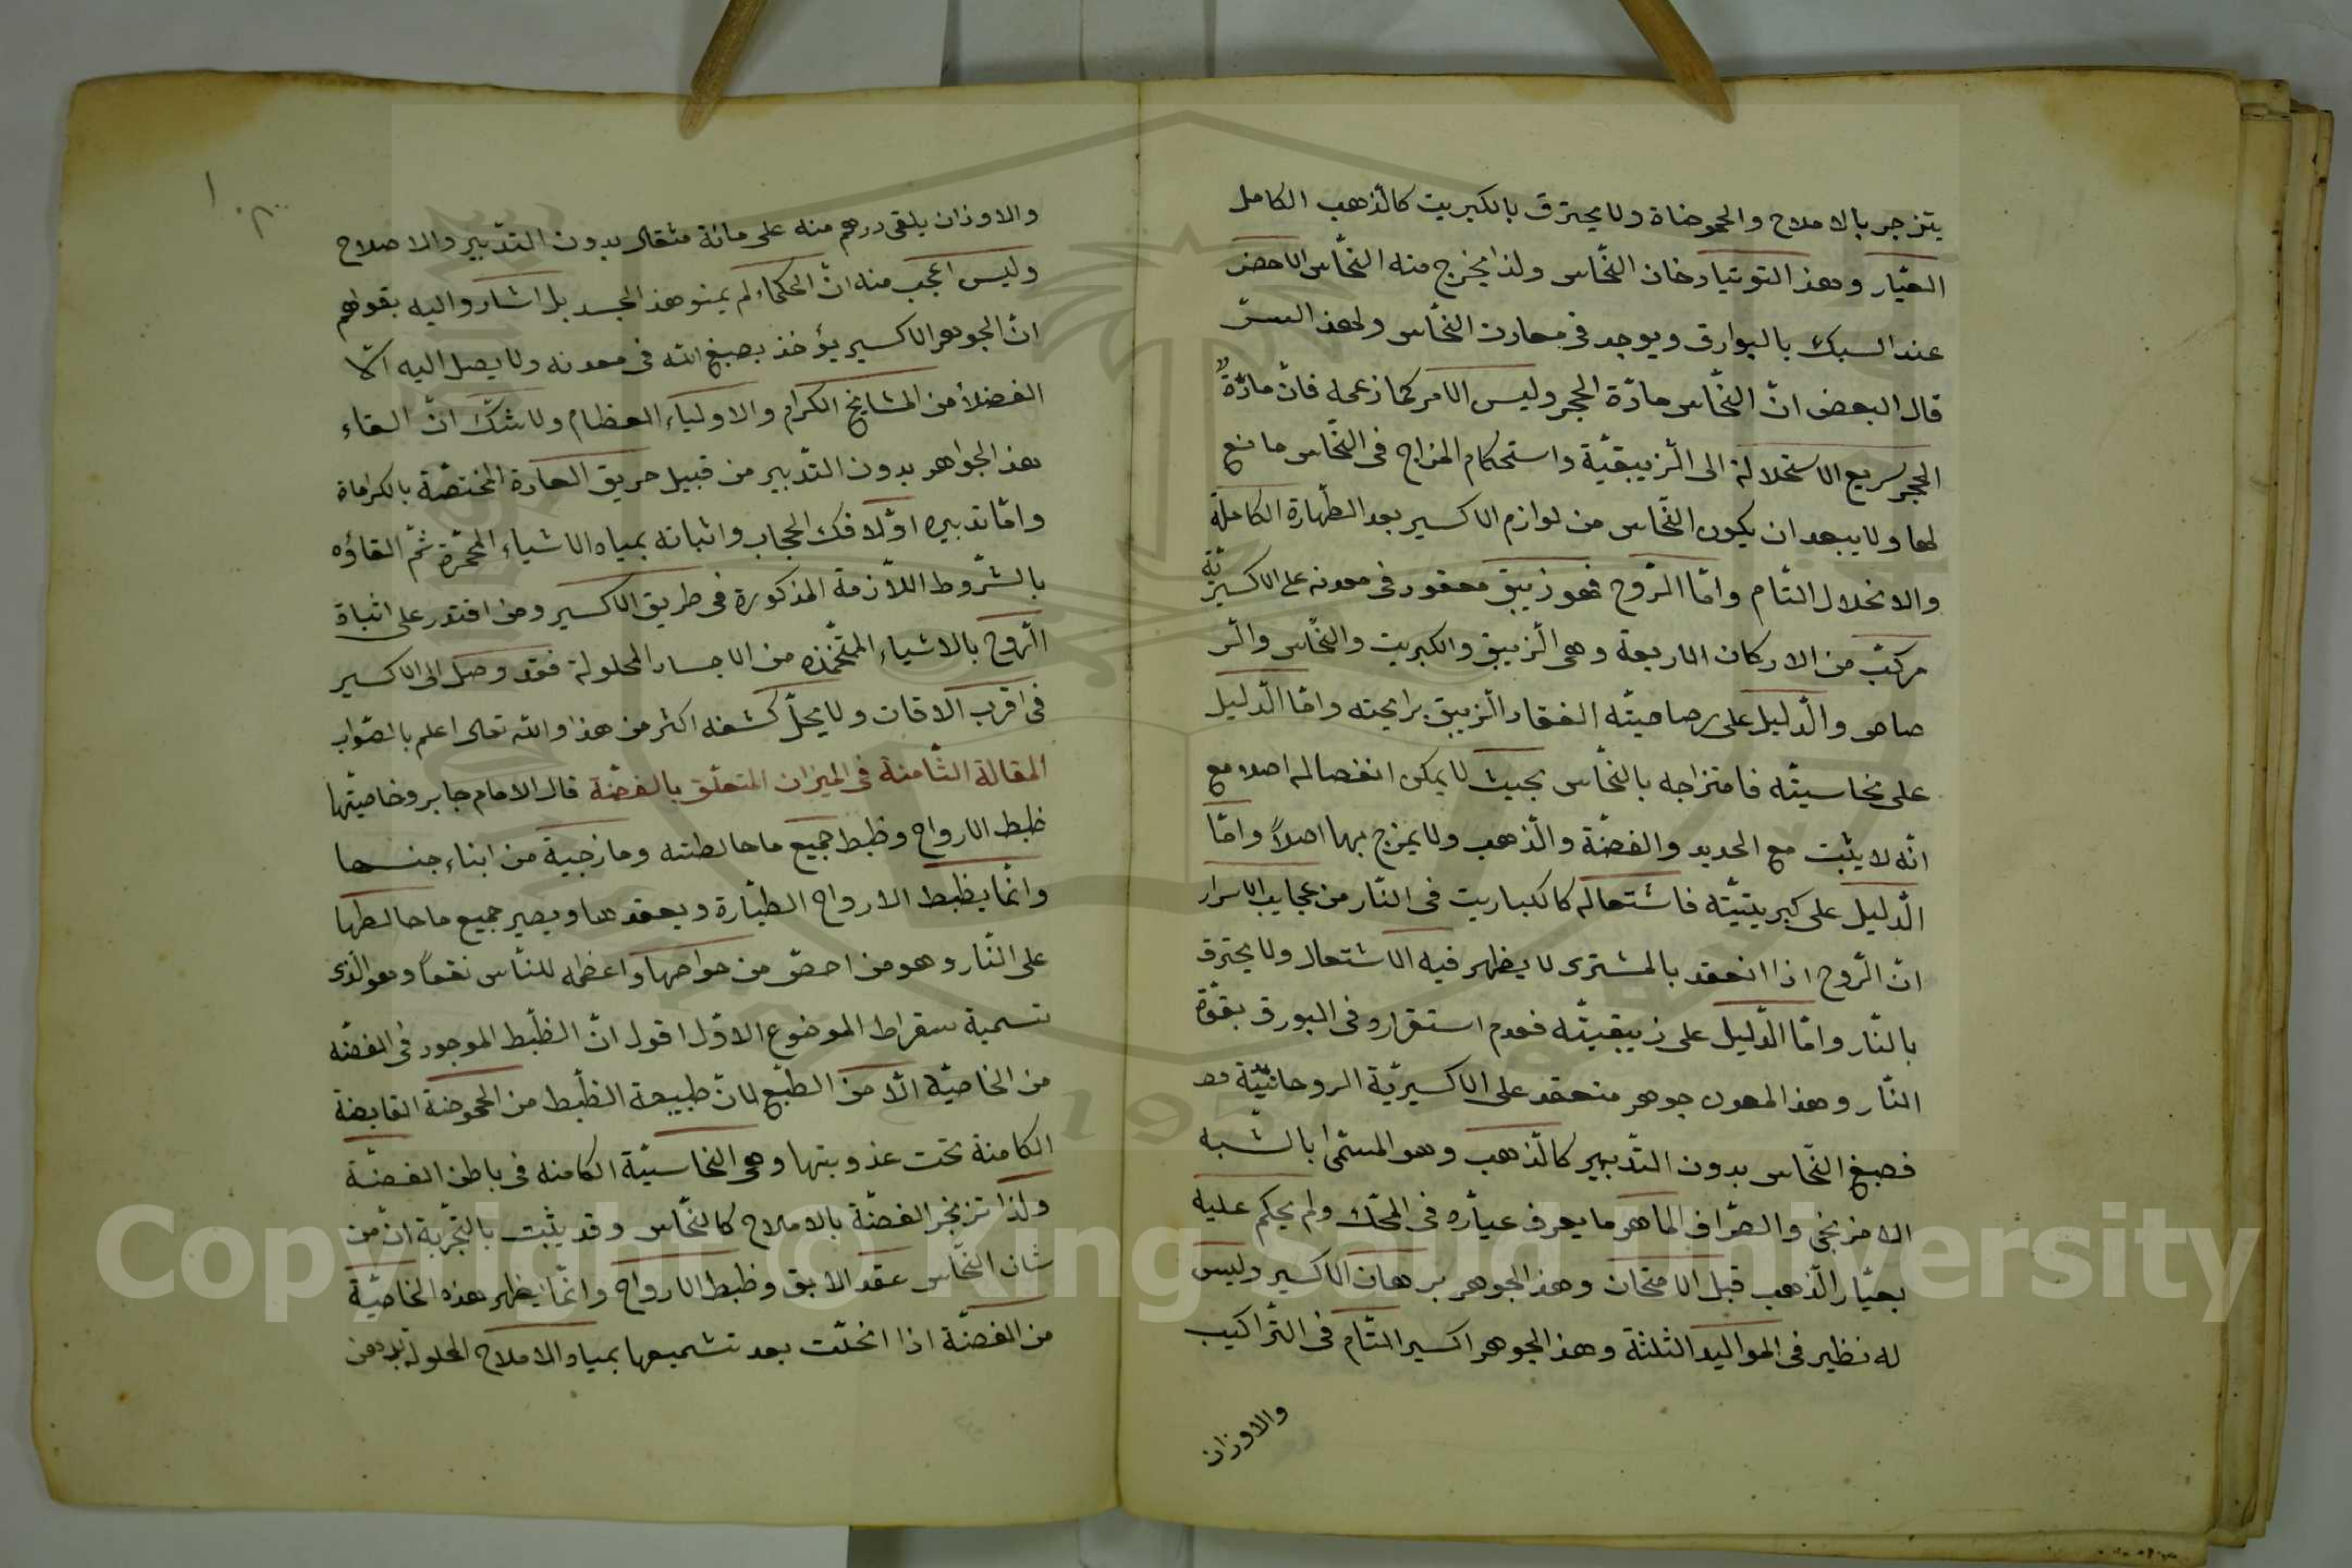 يتزجر بالاملاح والحموضاة ولا يحترق بالكبريت كالذهب الكامل
العيّار وهذ التوتيا دخان النحّاس ولذا يخرج منه النحّاس الاحضر
عند السبك بالبوارق ويوجد فى معادن النحّاس ولهذ السرّ
قال البعض انّ النحّاس مادّة الحجر وليس الامر كما زعمه فانّ مادّةٌ
الحجر سريع الاستحلالة الى الزيبقيّة واستحكام المزاج فى النحّاس مانع
لها ولا يبعد ان يكون النحّاس من لوازم الاكسير بعد الطّهارة الكاملة
والانحلال التّام وامّا الرّوح فهو زيبق معقود فى معدنه على الاكسيريّة
مركبّ من الاركان الاربعة وهى الزيبق والكبريت والنحّاس والر
صاص والدّليل على رصاصيتّه انعقاد الزيبق برايحته وامّا الدّليل
على نحاسيتّه فامتزاجه بالنحّاس بحيث لا يمكن انفصاله اصلا مع
انّه لا يثبت مع الحديد والفضّة والذّهب ولا يمزج بها اصلاً وامّا
الدّليل على كبريتيتّه فاشتعاله كالكباريت فى النّار من عجايب الاسرار
انّ الرّوح اذا انعقد بالمشترى لا يظهر فيه الاشتعال ولا يحترق
بالنّار وامّا الدّليل على زيبقيتّه فعدم استقراره فى البورق بقوّة
النّار وهذ المعدن جوهر منعقد على الاكسيريّة الروحانيّة
فصبغ النحّاس بدون التدّبير كالذّهب وهو المسمّى بالشبه
الافرنجى والصّراف الماهر ما يعرف عيّاره فى المحّك ولم يحكم عليه
بعيّار الذّهب قبل الامتحان وهذ الجوهر برهان الاكسير وليس
له نظير فى المواليد الثلثة وهذ الجوهر اكسير التّام فى التّراكيب
والاوزان
والاوزان يلقى درهم منه على مائة مثقال بدون التدّبير والاصلاح
وليس اعجب منه انّ الحكماء لم يمنو هذ الجسد بل اشاروا اليه بقولهم
انّ الجوهر الاكسير يؤخذ بصبغ الله فى معدنه ولا يصل اليه الّا
الفضلاُ من المشايخ الكرام والاولياء العظام ولا شكّ انّ القاء
هذ الجواهر بدون التدّبير من قبيل حريق العادة المختصّة بالكراماة
وامّا تدبيره اوّلا فك الحجاب واثباته بمياه الاشياء المحمّرة ثمّ القاؤه
بالشّروط اللاّزمة المذكورة فى طريق الاكسير ومن اقتدر على اثباة
الرّوح بالاشياء المتّخذه من الاجساد المحلولة فقد وصل الى الاكسير
فى اقرب الاوقات ولا يحلّ كشفه اكثر من هذا والله تعالى اعلم بالصّواب
المقالة الثّامنة فى الميزان المتعلّق بالفضّة قال الامام جابر وخاصيتّها
ظبط الارواح وظبط جميع ما خالطته وما زجية من ابناء جنسها
وانمّا يظبط الارواح الطيّارة ويعقدها ويصير جميع ما خالطها
على النّار وهو من احصّ من خواصها واعظمه للنّاس نفعاً وهو الّذى
تسمية سقراط الموضوع الاوّل اقول انّ الظّبط الموجود فى الفضّه
من الخاصيّة الّا من الطبّع لانّ طبيعة الظّبط من الحموضة القابضة
الكامنة تحت عذوبتها وهى النحاسيّة الكامنه فى باطن الفضّة
ولذا تزنجر الفضّة بالاملاح كالنحّاس وقد يثبت بالتجّربة انّ من
شان النحّاس عقد الابق وظبط الارواح وانمّا يظهر هذه الخاصيّة
من الفضّة اذا انحلّت بعد تشميعها بمياه الاملاح المحلولة